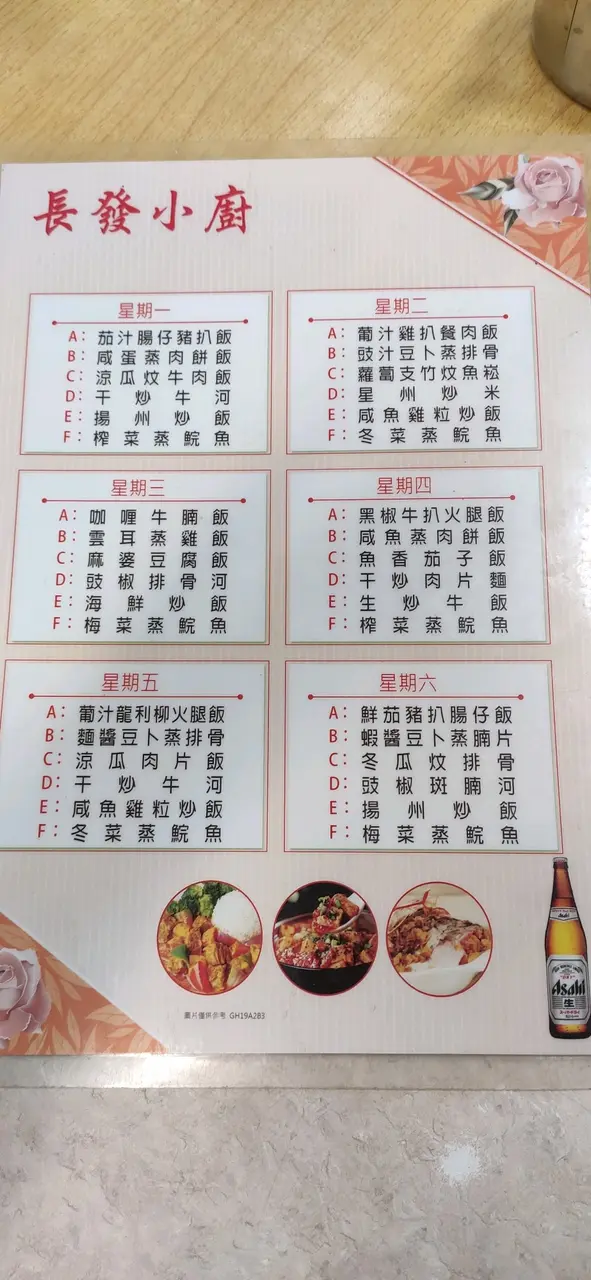 長發小廚
星期一
A: 茄汁腸仔豬扒飯
B: 咸蛋蒸肉餅飯
C: 涼瓜炆牛肉飯
D: 干炒牛河
E: 揚州炒飯
F: 榨菜蒸鯇魚
星期二
A: 葡汁雞扒餐肉飯
B: 豉汁豆卜蒸排骨
C: 蘿蔔支竹炆魚崧
D: 星州炒米
E: 咸魚雞粒炒飯
F: 冬菜蒸鯇魚
星期三
A: 咖喱牛腩飯
B: 雲耳蒸雞飯
C: 麻婆豆腐飯
D: 豉椒排骨河
E: 海鮮炒飯
F: 梅菜蒸鯇魚
星期四
A: 黑椒牛扒火腿飯
B: 咸魚蒸肉餅飯
C: 魚香茄子飯
D: 干炒肉片麵
E: 生炒牛飯
F: 榨菜蒸鯇魚
星期五
A: 葡汁龍利柳火腿飯
B: 麵醬豆卜蒸排骨
C: 涼瓜肉片飯
D: 干炒牛河
E: 咸魚雞粒炒飯
F: 冬菜蒸鯇魚
星期六
A: 鮮茄豬扒腸仔飯
B: 蝦醬豆卜蒸腩片
C: 冬瓜炆排骨
D: 豉椒斑腩河
E: 揚州炒飯
F: 梅菜蒸鯇魚
圖片僅供參考 GH19A2B3
Asahi
Asahi
生